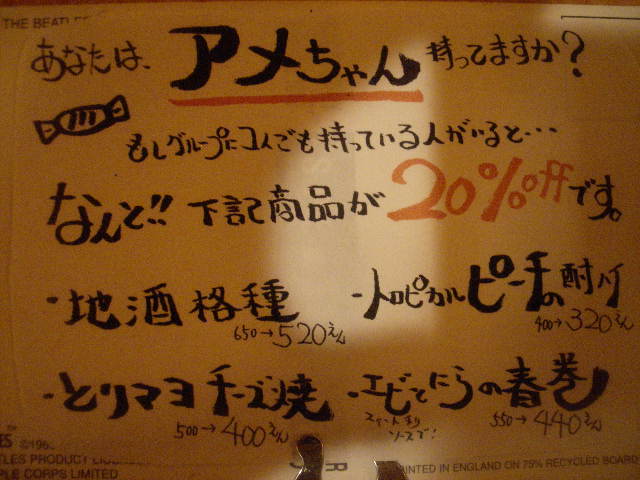 THE BEATLES
あなたは、アメちゃん持ってますか?
もしグループに1人でも持っている人がいると…
なんと!!下記商品が20%offです。
・地酒各種
650→520えん
・トロピカルピーチの酎ハイ
400→320えん
・とりマヨチーズ焼
500→400えん
・エビとにらの春巻
スイートチリソースで!
550→440えん
TLES PRODUCT
PLE CORPS LIMITED
PRINTED IN ENGLAND ON 75% RECYCLED BOARD